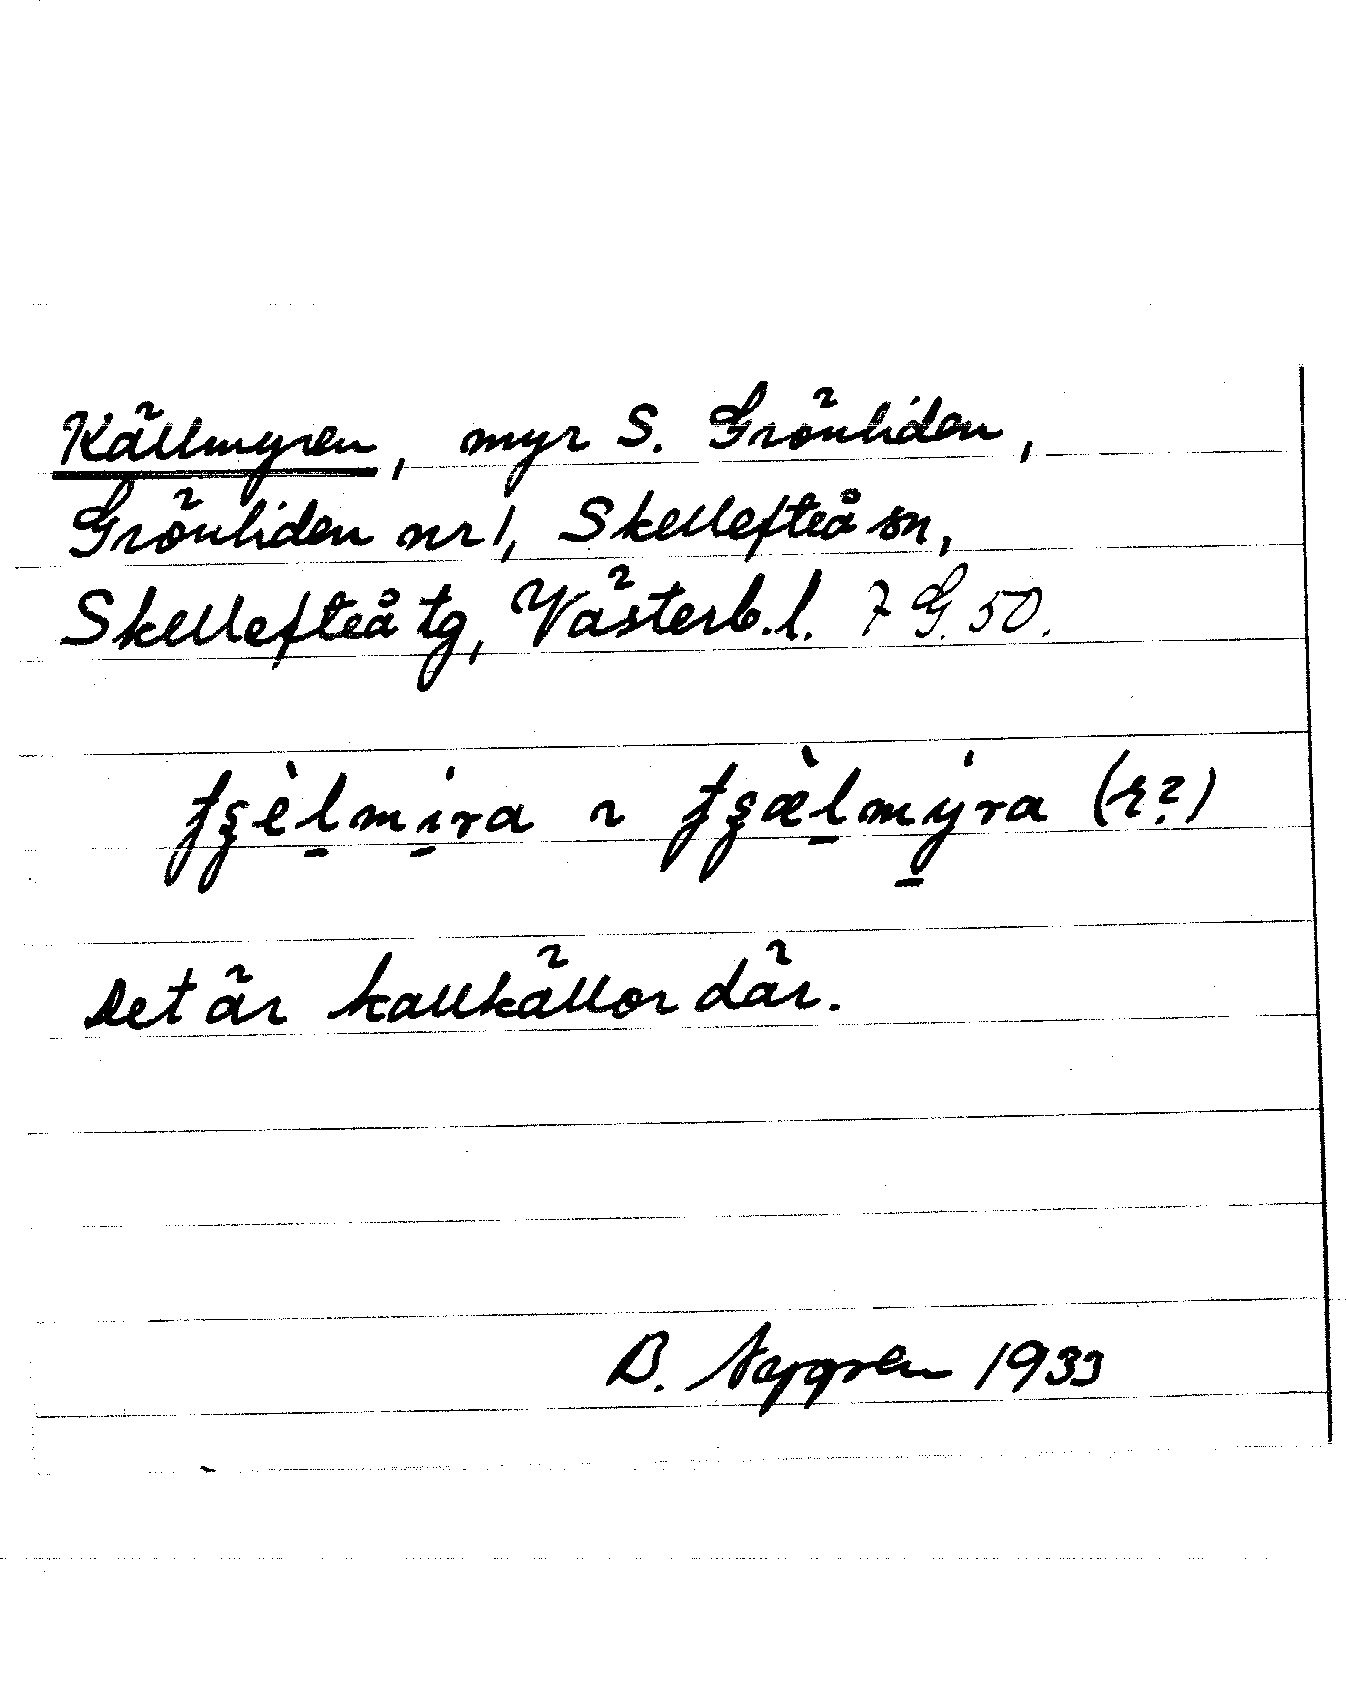 Källmyren, myr S. Grönliden,
Grönliden nr 1, Skellefteå sn,
Skellefteå tg, Västerb. l. 7 G. 50.
Det är kallkällor där.
B. Nygren 1933